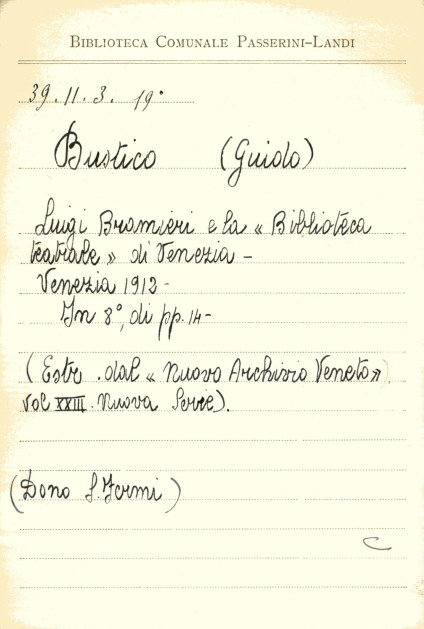 BIBLIOTECA COMUNALE PASSERINI-LANDI
39. II. 3. 19°
Bustico (Guido)
Luigi Bramieri e la « Biblioteca
teatrale » di Venezia -
Venezia 1912 -
In 8°, di pp. 14 -
( Estr. dal « Nuovo Archivio Veneto »)
vol XXIII. Nuova Serie).
(Dono S. Fermi)
C